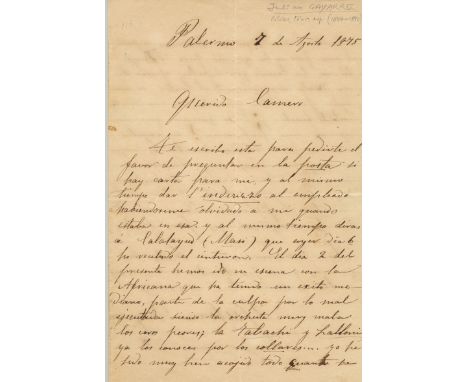 Julian GAYARRE
Palermo 7 de Agosto 1875
Querido
Te escribo esta para pedirte el
favor de preguntar en la posta si
hay carta para me y al mismo
tiempo dar l'inderizzo al empleado
habiendome olvidado a me cuando
estaba en esa y al mismo tiempo diras
á Calatayud (Mass) que ayer dia 6
ho recibido el
El dia 2 del
presente hemos ido en escena con la
Africana que ha tenido un exito me-
diano, parte de la culpa por lo mal
ejecutada siendo la orquesta muy mala
los coros peores; la y
ya los conoces por los yo he
sido muy bien acojido todo quanto